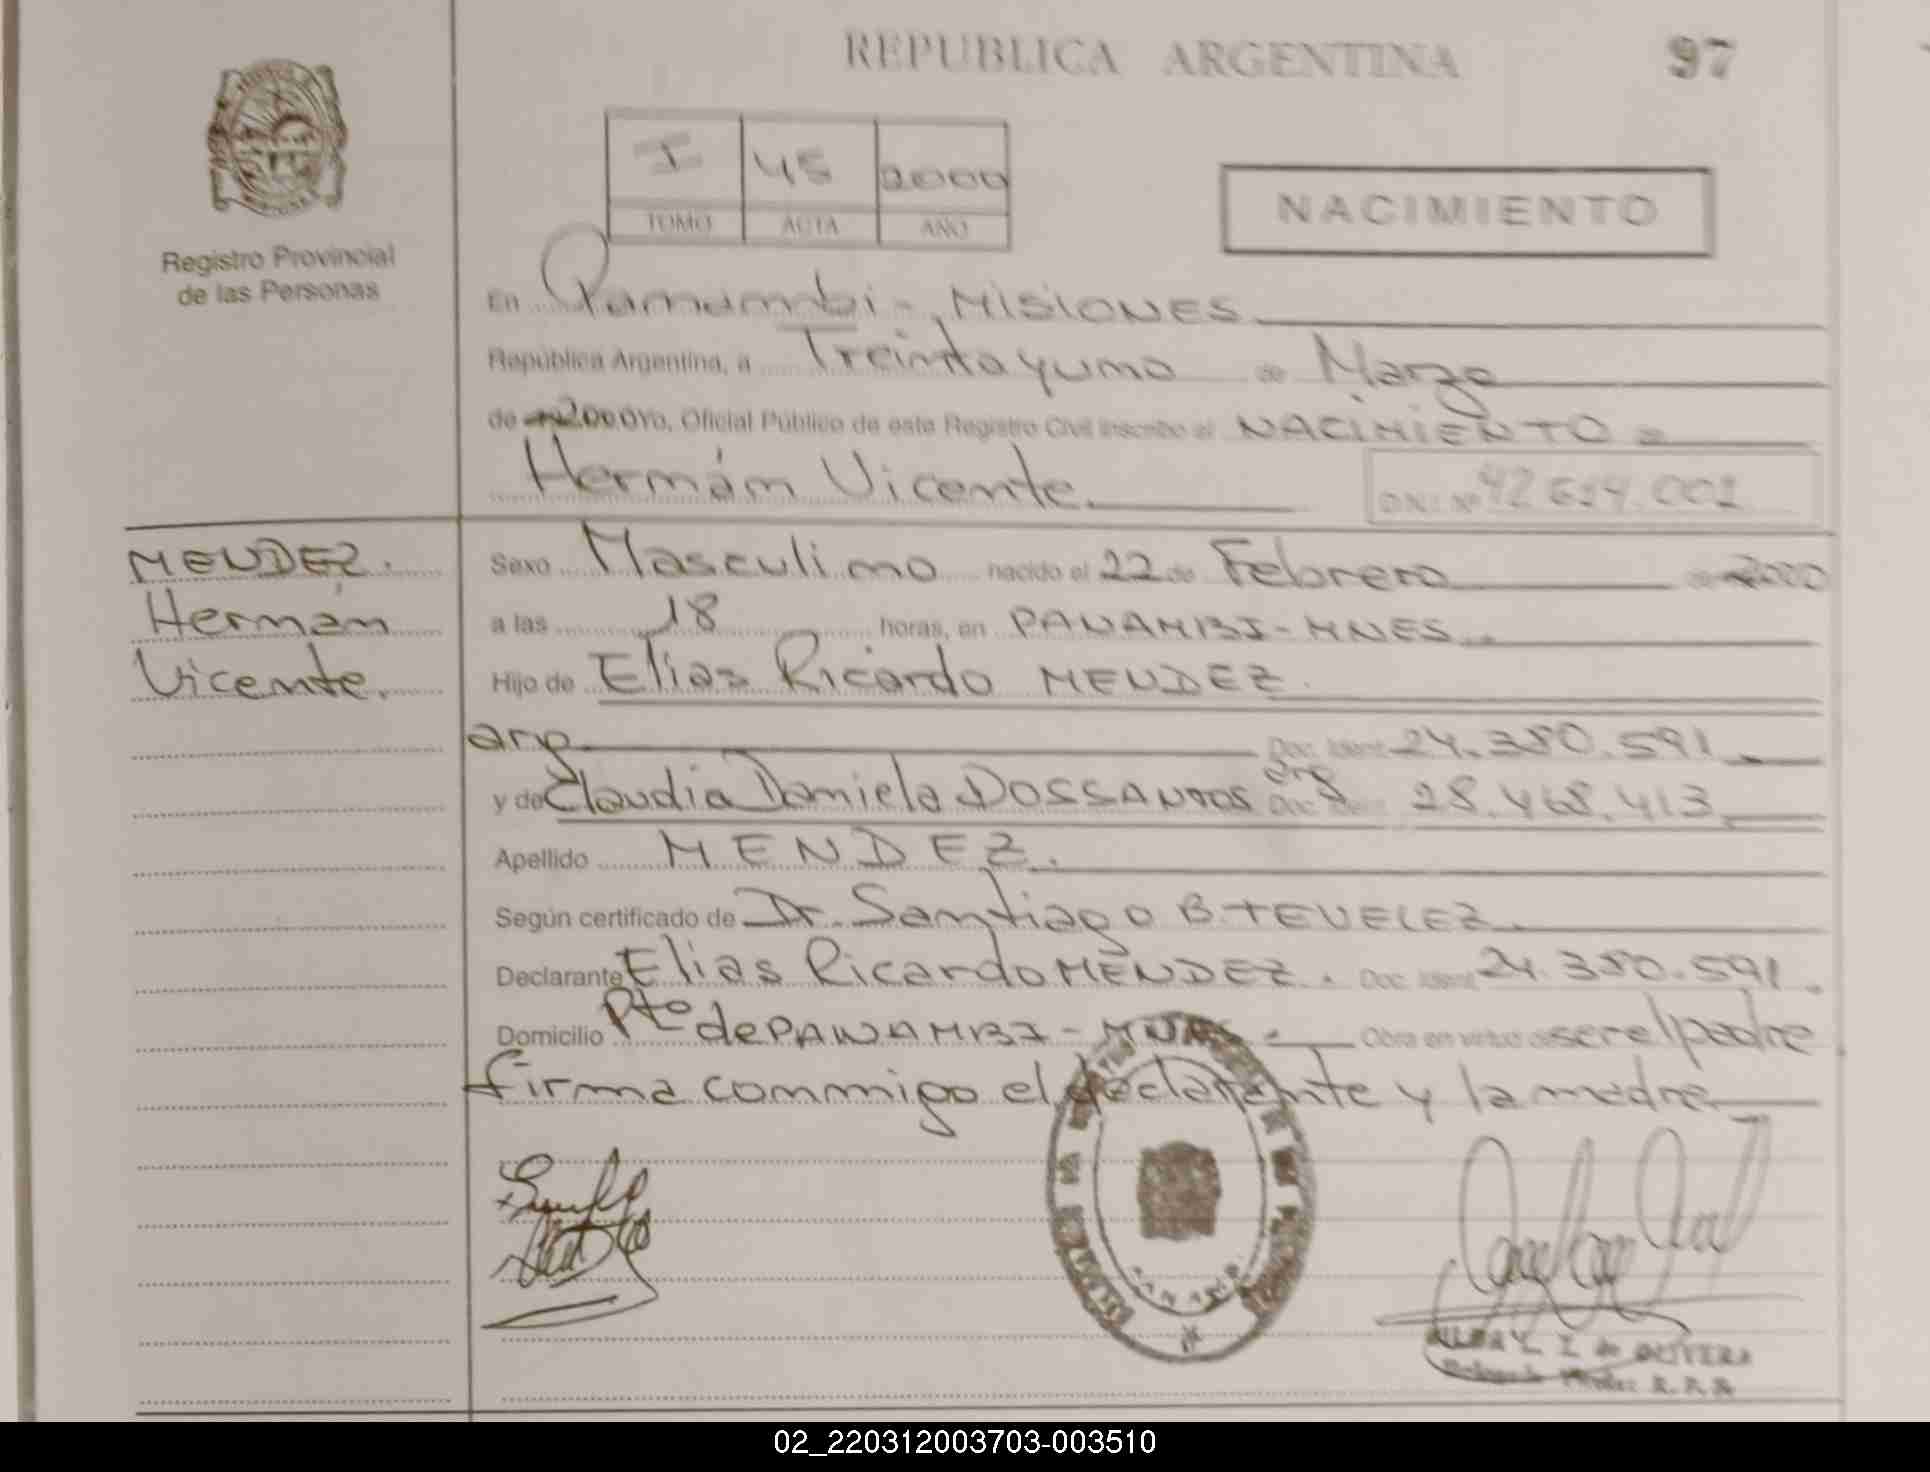 REPUBLICA ARGENTINA 97
I 45 2000
TOMO ACTA AÑO
NACIMIENTO
Registro Provincial
de las Personas
En Panambi - MISIONES
República Argentina, a Treinta y uno de Marzo
de 2000 Yo, Oficial Público de este Registro Civil inscribo el NACIMIENTO =
Hernán Vicente. D.N.I. Nº 42.614.001
MENDEZ.
Hernán
Vicente.
Sexo Masculino nacido el 22 de Febrero de 2000
a las 18 horas, en PANAMBI - MNES.
Hijo de Elias Ricardo MENDEZ.
arg Doc. Ident. 24.380.591
y de Claudia Daniela DOSSANTOS arg Doc. Ident. 28.468.413
Apellido MENDEZ.
Según certificado de Dr. Santiago B. TEVELEZ.
Declarante Elias Ricardo MENDEZ. Doc. Ident. 24.380.591.
Domicilio Pto de PANAMBI - MNES. Obra en virtud de ser el padre
firma conmigo el declarante y la madre
de OLIVERA
02_220312003703-003510